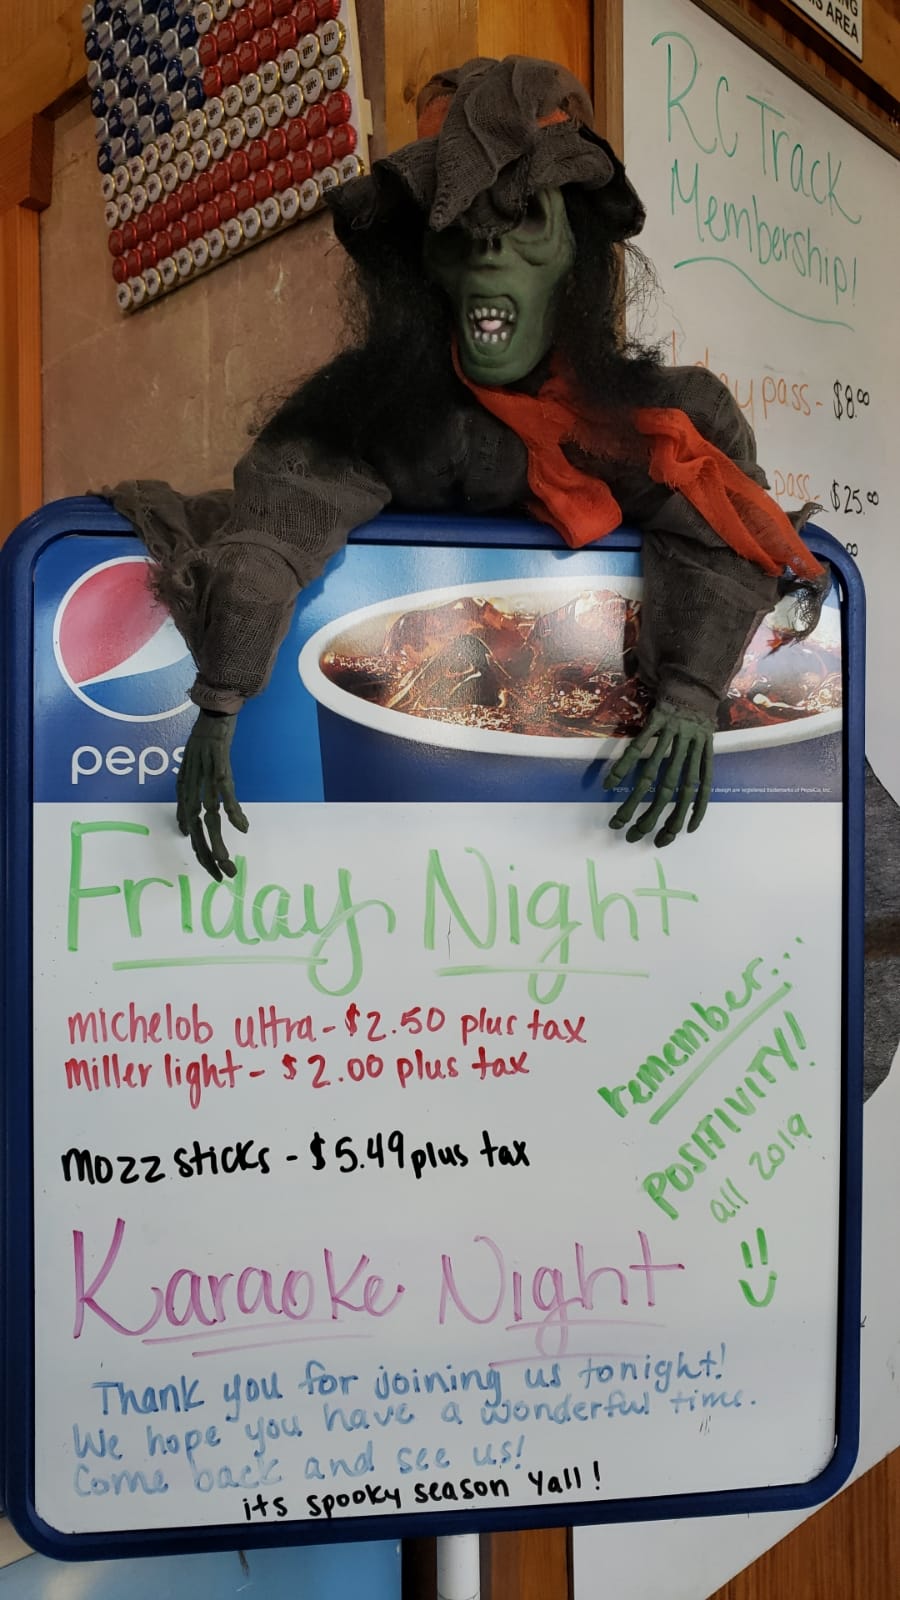 IS AREA
RC Track
Membership!
pass - $8.00
pass - $25.00
peps
Friday Night
michelob ultra - $2.50 plus tax
miller light - $2.00 plus tax
mozz sticks - $5.49 plus tax
remember...
POSITIVITY!
all 2019
Karaoke Night
Thank you for joining us tonight!
We hope you have a wonderful time.
Come back and see us!
its spooky season yall!